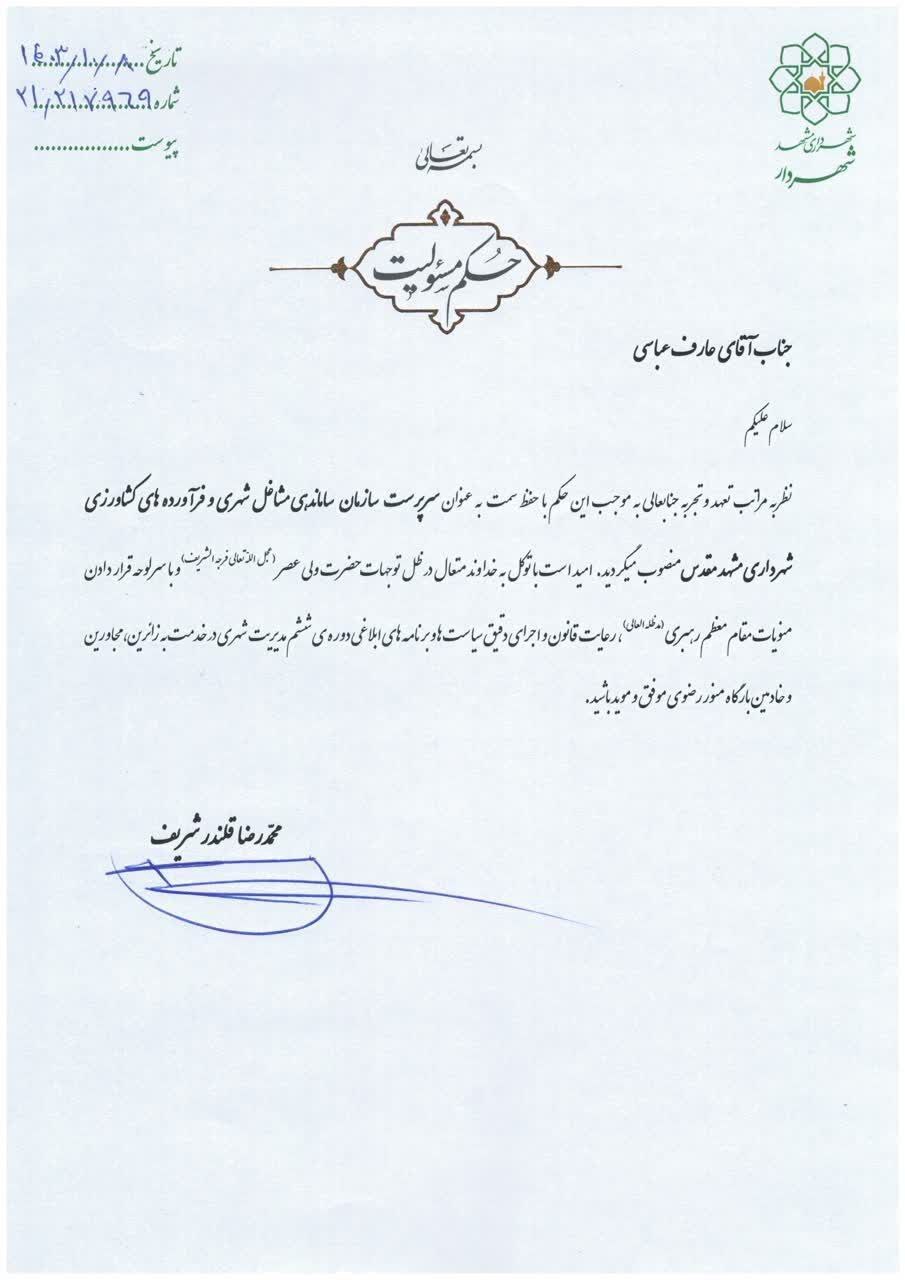 تاریخ ۱۴۰۳/۱۰/۸
شماره ۲۱/۲۱۷۹۶۹
پیوست
شهرداری مشهد
شهردار
بسمه تعالی
حکم مسئولیت
جناب آقای عارف عباسی
سلام علیکم
نظر به مراتب تعهد و تجربه جنابعالی به موجب این حکم با حفظ سمت به عنوان سرپرست سازمان ساماندهی مشاغل شهری و فرآورده های کشاورزی
شهرداری مشهد مقدس منصوب میگردید. امید است با توکل به خداوند متعال در ظل توجهات حضرت ولی عصر (عجل الله تعالی فرجه الشریف) و با سرلوحه قرار دادن
منویات مقام معظم رهبری (مدظله العالی)، رعایت قانون و اجرای دقیق سیاست ها و برنامه های ابلاغی دوره ی ششم مدیریت شهری در خدمت به زائرین، مجاورین
و خادمین بارگاه منور رضوی موفق و موید باشید.
محمدرضا قلندر شریف